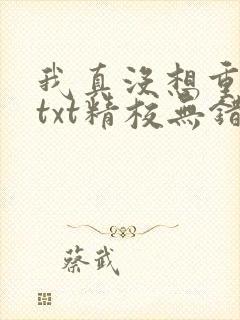 我真没想重
txt精校無错
蔡武